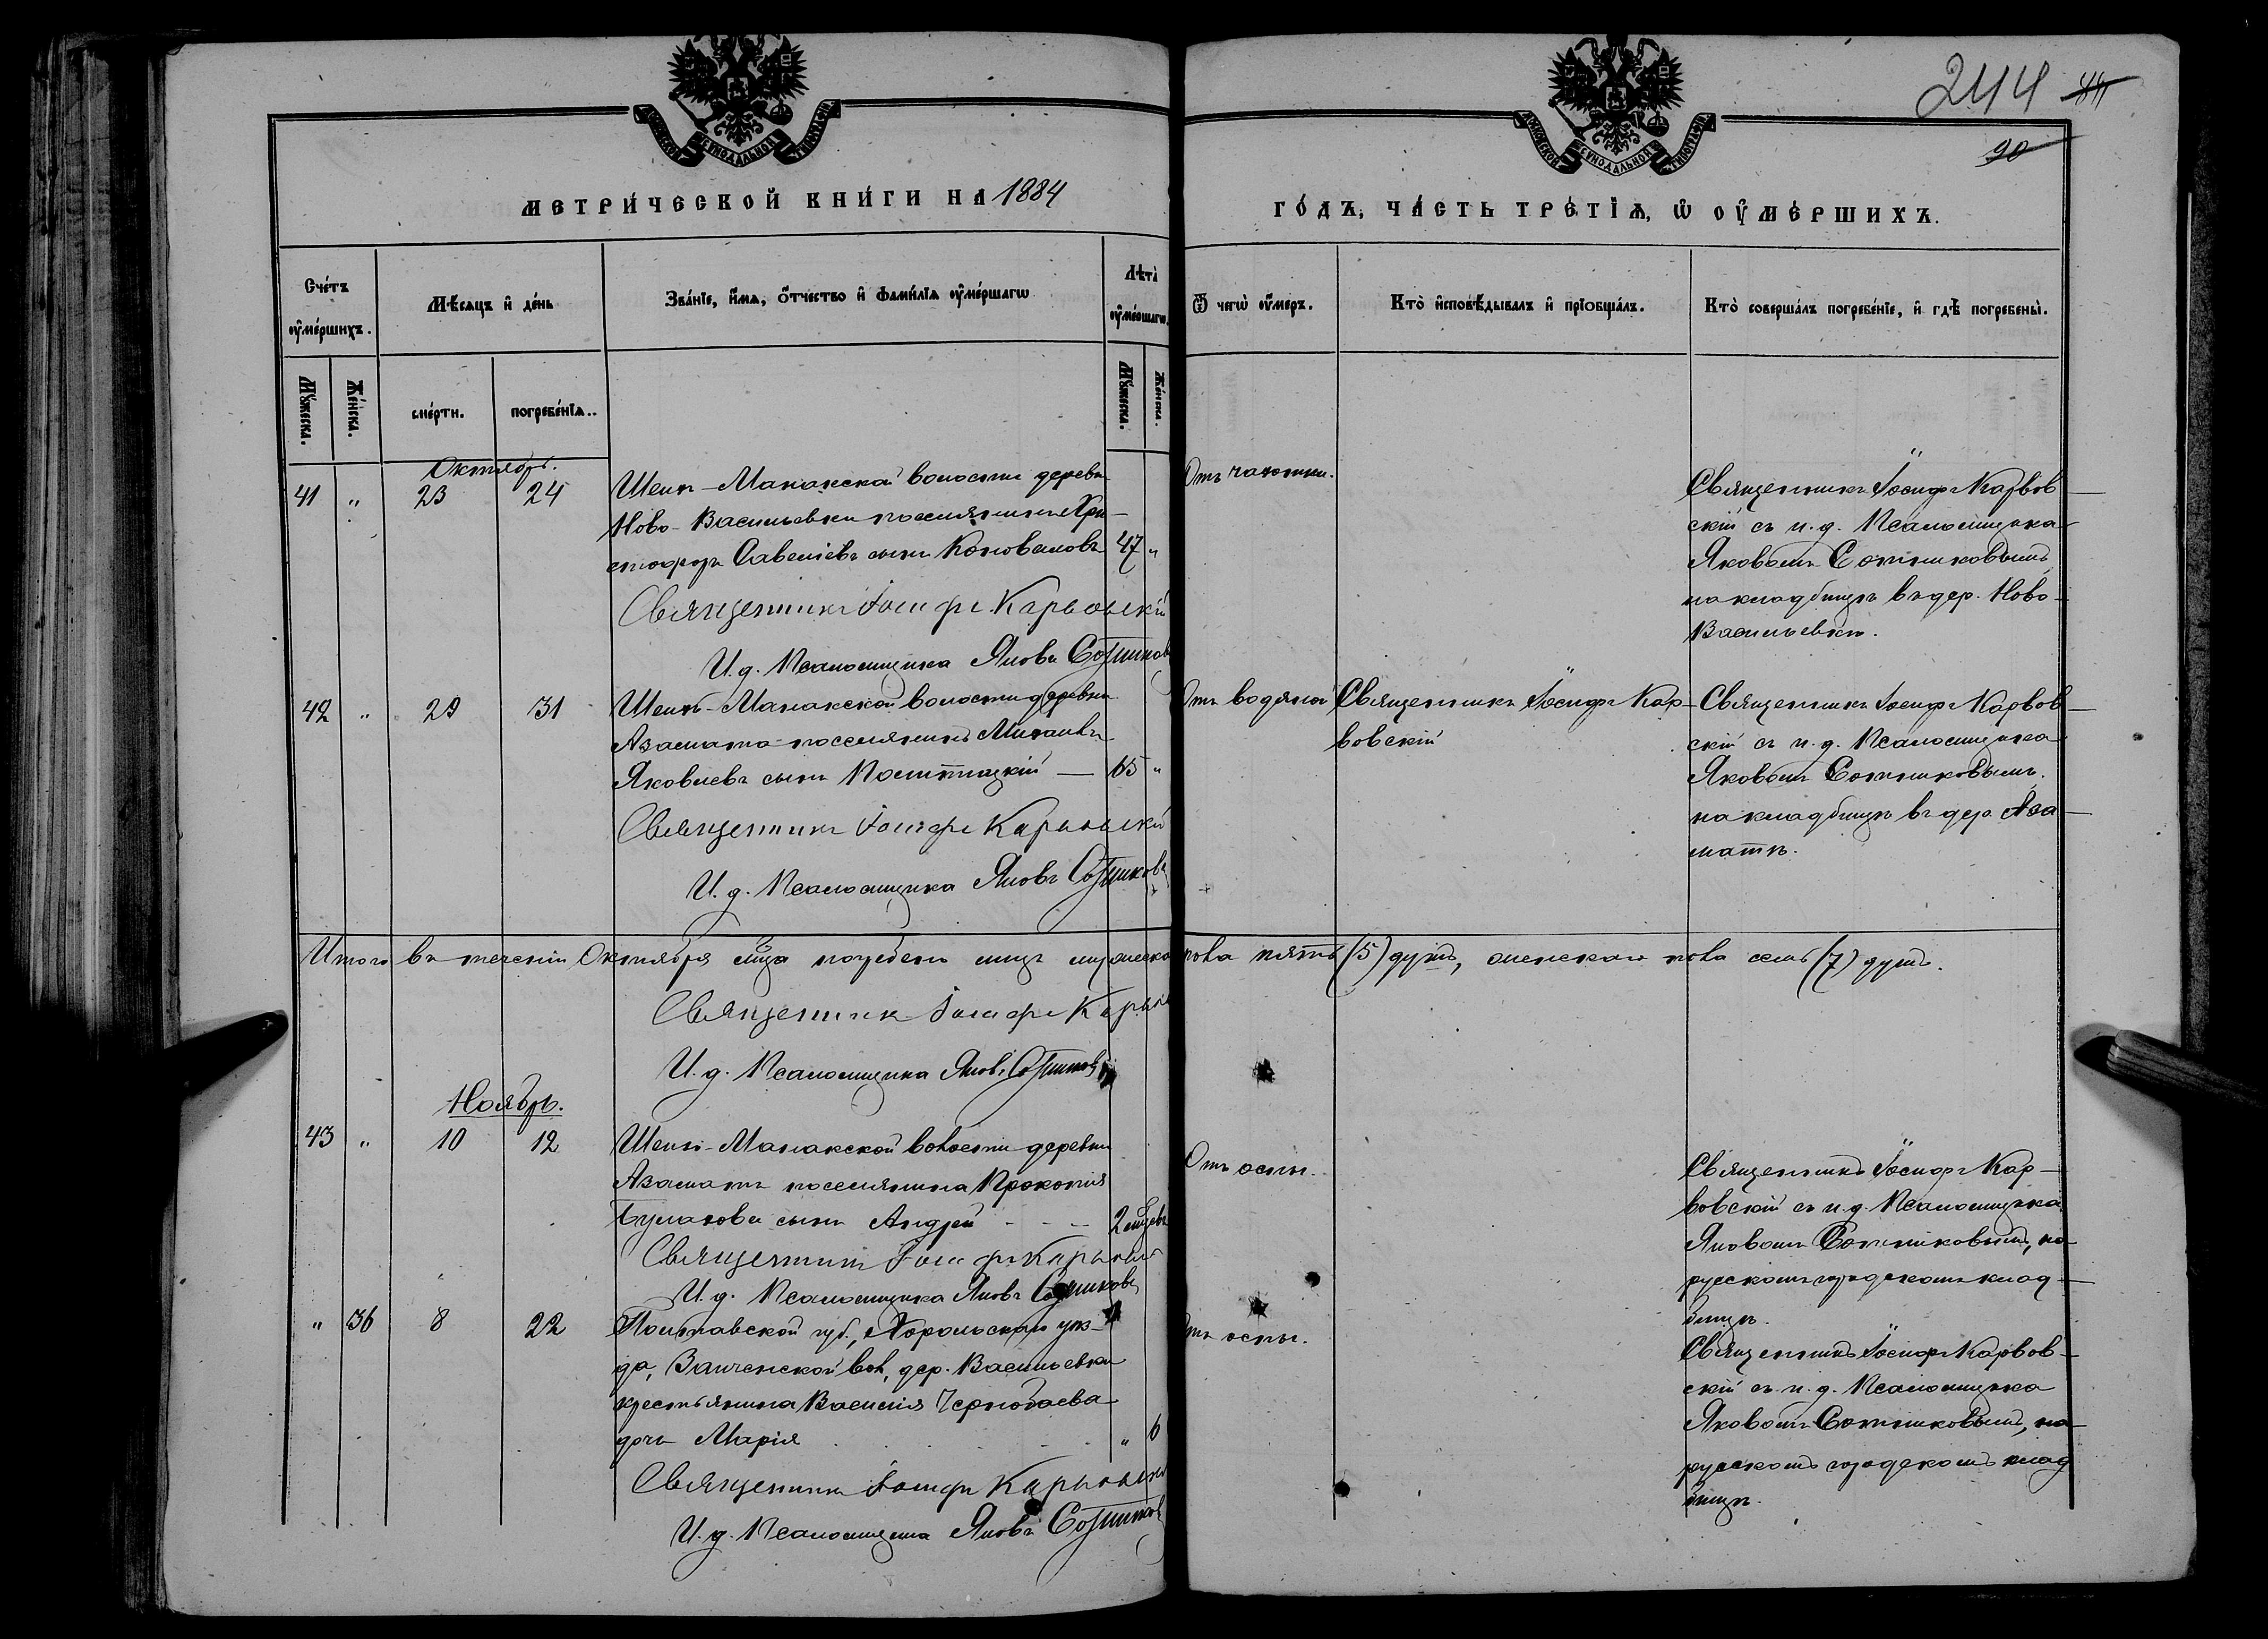 МОСКОВСКОЙ СѴНОДАЛЬНОЙ ТИПОГРАФІИ
МОСКОВСКОЙ СѴНОДАЛЬНОЙ ТИПОГРАФІИ
244 44
90
МЕТРИ́ЧЕСКОЙ КНИ́ГИ НА 1884
ГО́ДЪ, ЧА́СТЬ ТРЕ́ТІѦ, Ѡ ОУ҆МЕ́РШИХЪ.
Сче́тъ оу҆ме́ршихъ.
Мѣ́сяцъ и҆ де́нь
Зва́нїе, и҆́мѧ, ѻ҆́тчество и҆ фами́лїѧ оу҆ме́ршагѡ
Лѣ́та оу҆ме́ршагѡ.
Ѿ чегѡ̀ оу҆́меръ.
Кто̀ и҆сповѣ́дывалъ и҆ прїобща́лъ.
Кто̀ соверша́лъ погребе́нїе, и҆ гдѣ̀ погребены̀.
Му́жеска.
Же́нска.
сме́рти.
погребе́нїѧ.
Му́жеска.
Же́нска.
Октябрь.
41 " 23 24
Шеих-Манакской волости деревни
Ново-Васильевки поселянинъ Хри-
стофоръ Савеліевъ сынъ Коноваловъ 47 "
Священникъ Іосифъ Карвовскій
И. д. Псаломщика Яковъ Сотников
Отъ чахотки.
Священникъ Іосифъ Карвов-
скій съ и. д. Псаломщика
Яковомъ Сотниковымъ
на кладбищѣ въ дер. Ново-
Васильевкѣ.
42 " 29 31
Шеих-Манакской волости деревни
Азамата поселянинъ Михаилъ
Яковлевъ сынъ — 65 "
Священникъ Іосифъ Карвовскій
И. д. Псаломщика Яковъ Сотников
Отъ водяной
Священникъ Іосифъ Кар-
вовскій
Священникъ Іосифъ Карвов-
скій съ и. д. Псаломщика
Яковомъ Сотниковымъ.
на кладбищѣ въ дер. Аза-
матѣ.
Итого въ теченіи Октября м-ца погребено лицъ мужеска пола пять (5) душъ, женскаго пола семь (7) душъ.
Священник Іосифъ Карвов
И. д. Псаломщика Яковъ Сотников
Ноябрь.
43 " 10 12
Шеих-Манакской волости деревни
Азаматъ поселянина Прокопія
Булахова сынъ Андрей - - - 2 мѣсяца
Священникъ Іосифъ Карвовскій
И. д. Псаломщика Яковъ Сотников
Отъ оспы.
Священникъ Іосифъ Кар-
вовскій съ и. д. Псаломщика
Яковомъ Сотниковымъ, на
русскомъ городскомъ клад-
бищѣ.
" 36 8 22
Полтавской губ., Хорольскаго уѣз-
да, вол, дер. Васильевки
крестьянина Василія Чернобаева
дочь Марія " 6
Священникъ Іосифъ Карвовскій
И. д. Псаломщика Яковъ Сотников
Отъ оспы.
Священникъ Іосифъ Карвов-
скій съ и. д. Псаломщика
Яковомъ Сотниковымъ, на
русскомъ городскомъ клад
бищѣ.